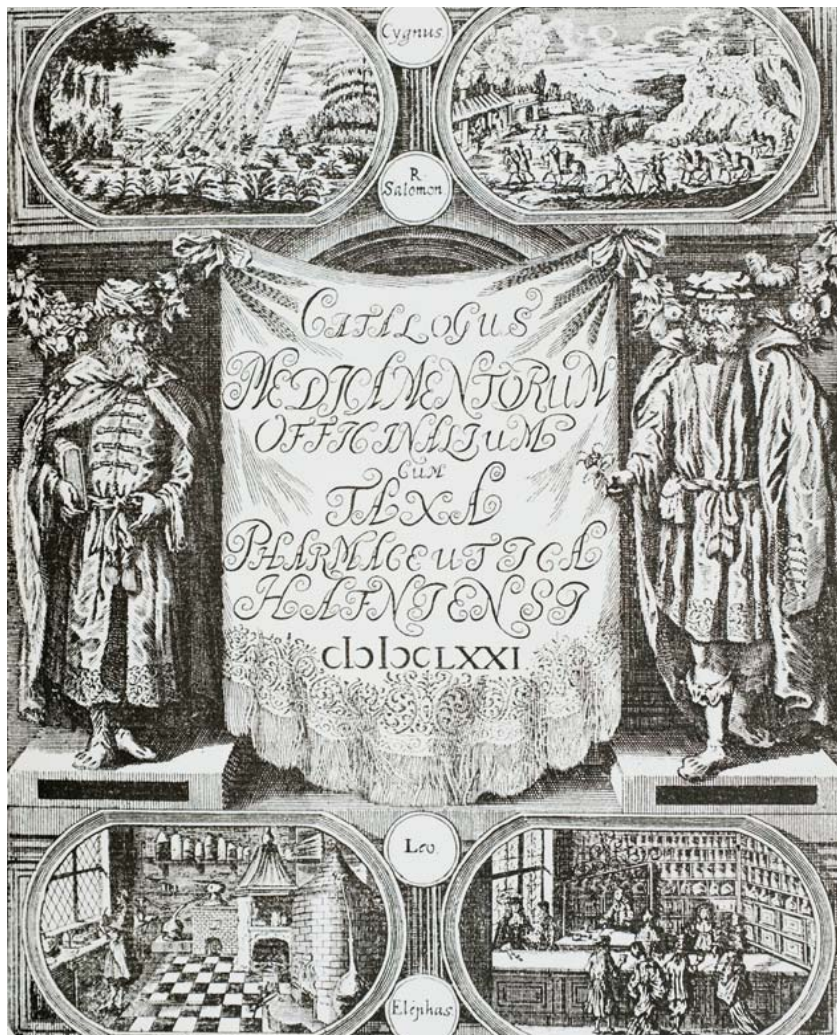 Cygnus
R.
Salomon
CATALOGUS
MEDICAMENTORUM
OFFICINALIUM
CUM
TAXA
PHARMACEUTICA
HAFNIENSI
cIↄ Iↄ cLXXI
Leo.
Elephas.